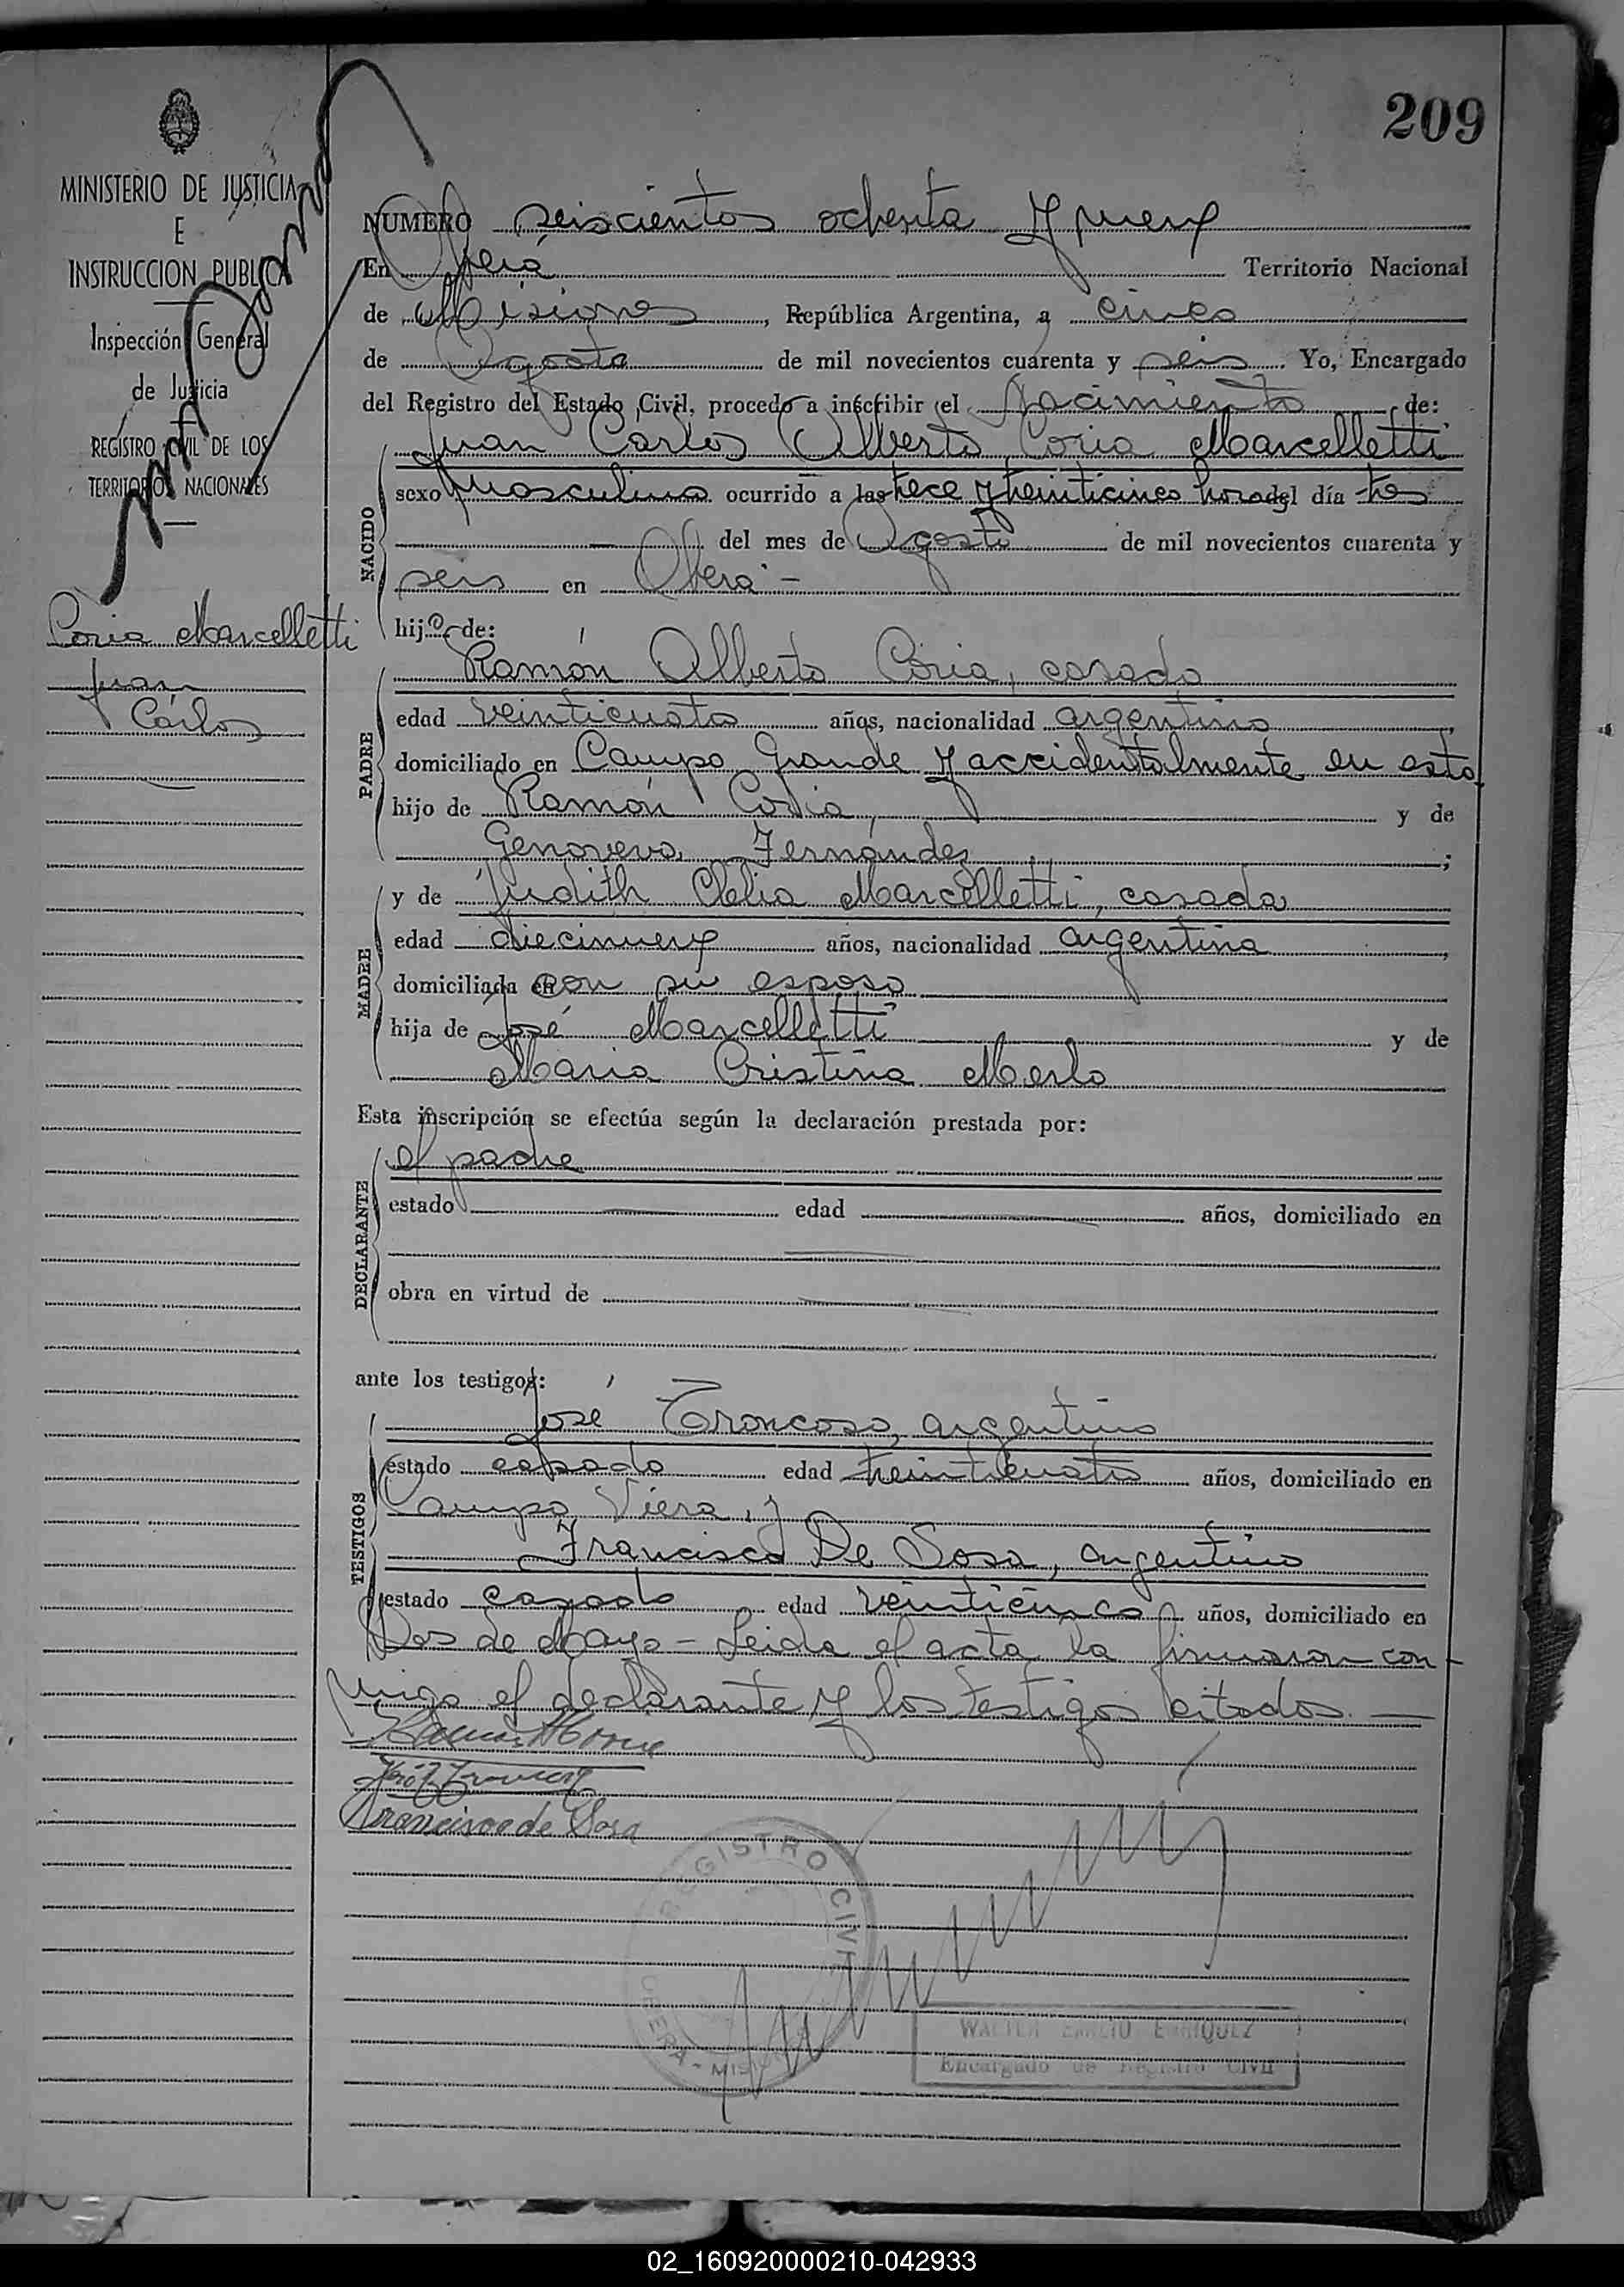 209
MINISTERIO DE JUSTICIA
E
INSTRUCCION PUBLICA
Inspección General
de Justicia
REGISTRO CIVIL DE LOS
TERRITORIOS NACIONALES
Coria Marcelletti
Juan
Cárlos
NUMERO seiscientos ochenta y nueve
En Oberá Territorio Nacional
de Misiones, República Argentina, a cinco
de Agosto de mil novecientos cuarenta y seis. Yo, Encargado
del Registro del Estado Civil, procedo a inscribir el Nacimiento de:
Juan Cárlos Alberto Coria Marcelletti
NACIDO
sexo Masculino ocurrido a las trece y veinticinco horas del día tres
del mes de Agosto de mil novecientos cuarenta y
seis en Oberá -
hijo de:
PADRE
Ramón Alberto Coria, casado
edad veinticuatro años, nacionalidad argentino
domiciliado en Campo Grande y accidentalmente en esta
hijo de Ramón Coria, y de
Genoveva Fernández;
MADRE
y de Judith Clelia Marcelletti, casada
edad diecinueve años, nacionalidad argentina
domiciliada en con su esposo
hija de José Marcelletti y de
Maria Cristina Merlo
Esta inscripción se efectúa según la declaración prestada por:
DECLARANTE
el padre
estado edad años, domiciliado en
obra en virtud de
ante los testigos:
TESTIGOS
José Troncoso, argentino
estado casado edad treinticuatro años, domiciliado en
Campo Viera, y
Francisco De Sosa, argentino
estado casado edad veinticinco años, domiciliado en
Dos de Mayo - Leida el acta la firmaron con-
migo el declarante y los testigos citados. -
Francisco de Sosa
REGISTRO CIVIL
OBERA - MISIONES
WALTER EMILIO ENRIQUEZ
Encargado de Registro Civil
02_160920000210-042933